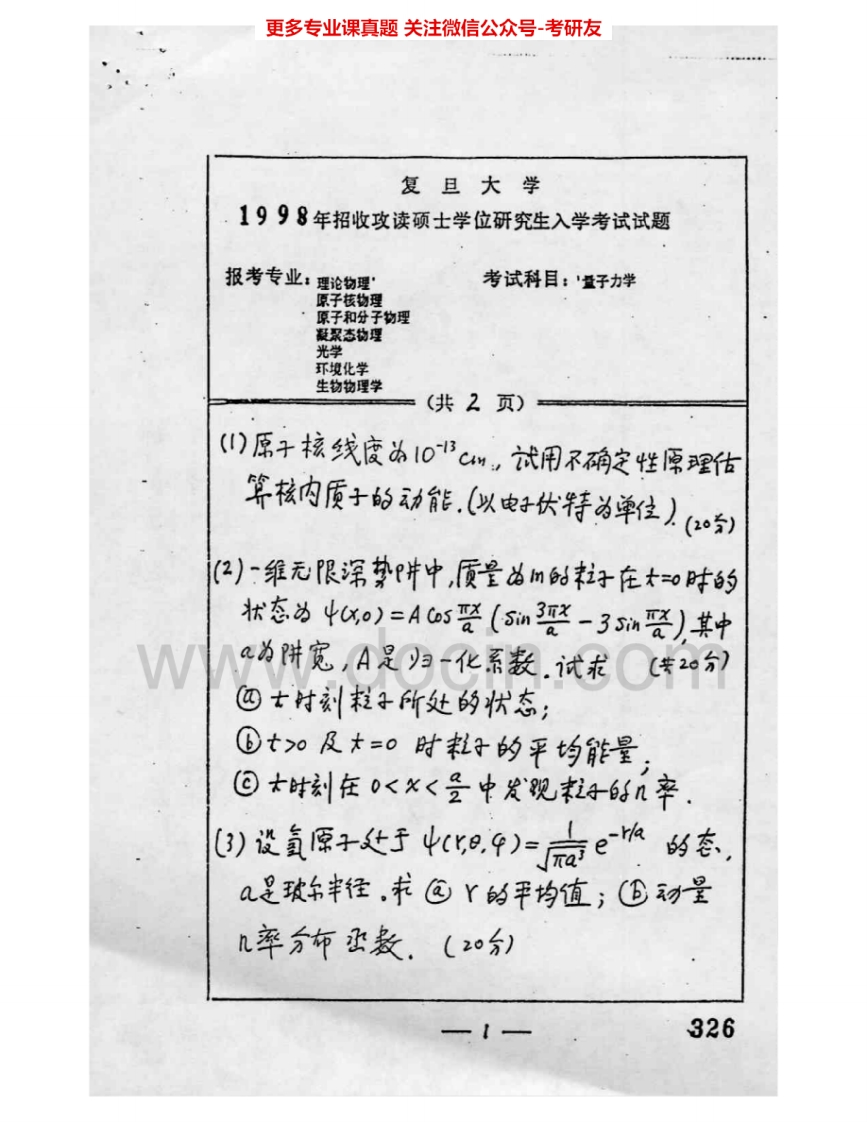 更多专业课真题 关注微信公众号-考研友
复旦大学
1998年招收攻读硕士学位研究生入学考试试题
报考专业：理论物理 考试科目：量子力学
原子核物理
原子和分子物理
凝聚态物理
光学
环境化学
生物物理学
(共 2 页)
(1)原子核线度为10⁻¹³cm, 试用不确定性原理估
算核内质子的动能.(以电子伏特为单位). (20分)
(2)一维无限深势阱中,质量为m的粒子在t=0时的
状态为 ψ(x,0)=A cos πx/a (sin 3πx/a - 3 sin πx/a),其中
a为阱宽,A是归一化系数.试求 (共20分)
ⓐ t时刻粒子所处的状态;
ⓑ t>0 及 t=0 时粒子的平均能量;
ⓒ t时刻在 0<x<a/2 中发现粒子的几率.
(3)设氢原子处于 ψ(r,θ,φ)=1/√πa³ e^(-r/a) 的态,
a是玻尔半径.求 ⓐ r的平均值; ⓑ动量
几率分布函数. (20分)
— 1 — 326
www.docin.com